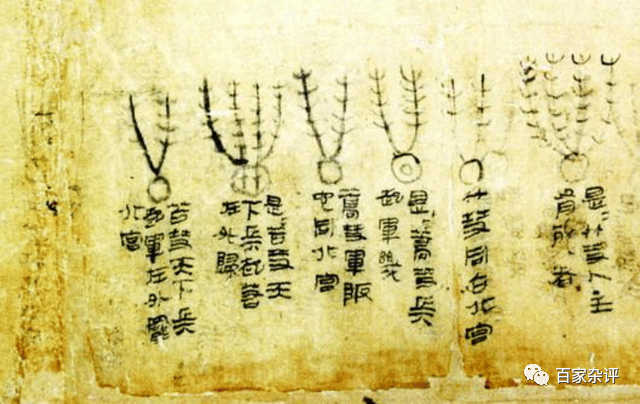 是=竹彗人主
有死者
竹彗同占北宮
是=蒿彗兵
起軍幾
蒿彗軍阪
它同北宮
是=苫彗天
下兵起若
在外歸
苫彗天下兵
起軍在外罷
北宮
百家杂评